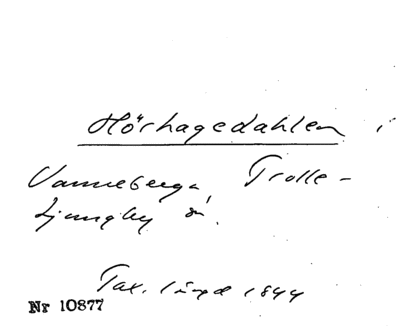 Hörhagedahlen i
Vanneberga, Trolle-
Ljungby sn.
Tax. längd 1844
Nr 10877